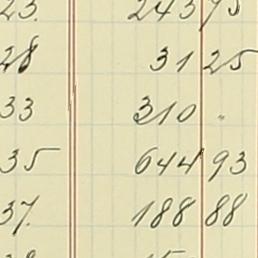 23. 243 75
28 31 25
33 310 "
35 644 93
37. 188 88